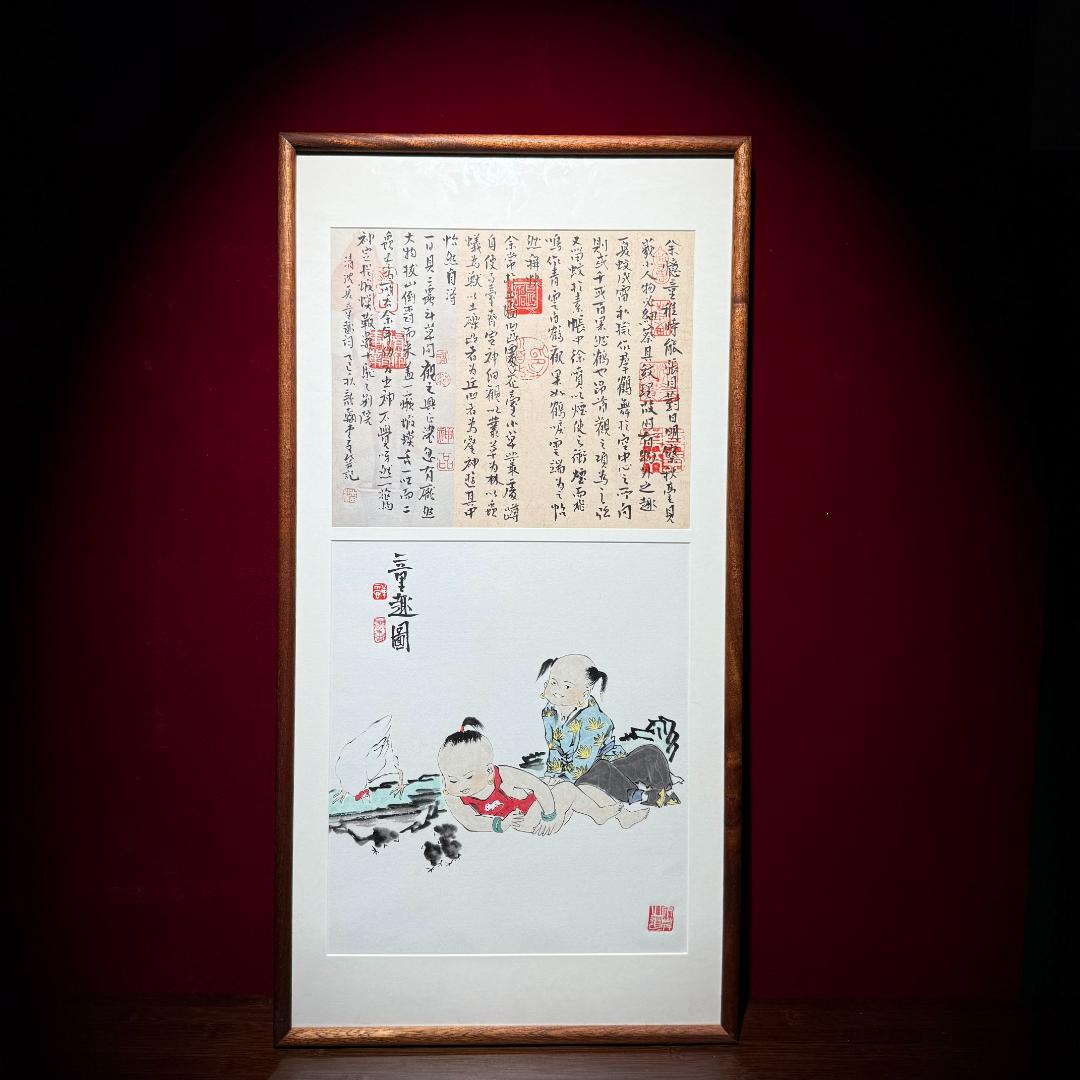 余憶童稚時能張目對日明察秋毫見
藐小人物必細察其紋理故時有物外之趣
夏蚊成雷私擬作群鶴舞於空中心之所向
則或千或百果然鶴也昂首觀之項為之強
又留蚊於素帳中徐噴以煙使之衝煙而飛
鳴作青雲白鶴觀果如鶴唳雲端為之怡
然稱
余常於凹凸處花臺小草叢處蹲
自使與臺齊定神細觀以叢草為林以蟲
蟻為獸以土礫凸者為丘凹者為壑神遊其中
怡然自得
一日見二蟲鬥草間觀之興正濃忽有龐然
大物拔山倒樹而來蓋一癩蝦蟆舌一吐而二
蟲盡為所吞余年幼方出神不覺呀然一驚
神定捉蝦蟆鞭數十驅之別院
清沈復童趣詞乙巳秋
童趣圖